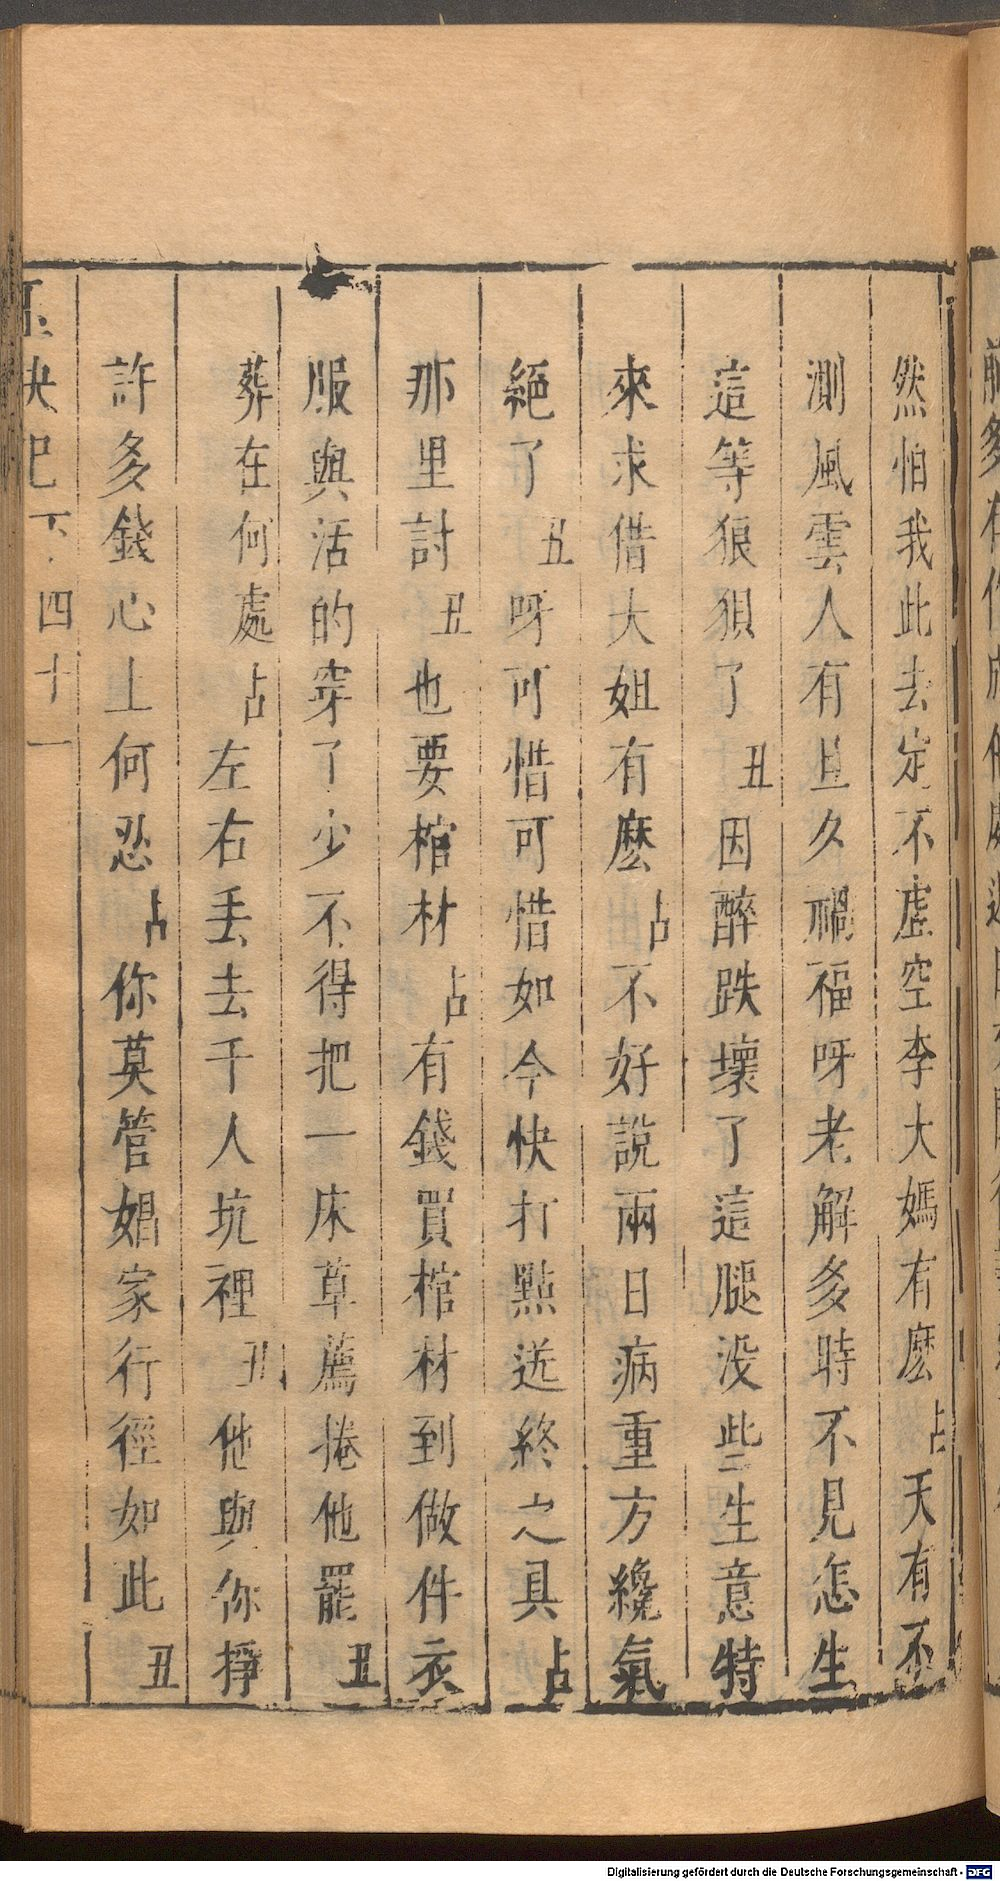 然怕我此去定不虛空李大媽有麽占天有不
測風雲人有旦夕禍福呀老解多時不見怎生
這等狼狽了丑因醉跌壞了這腿没些生意特
來求借大姐有麽占不好說兩日病重方纔氣
絕了丑呀可惜可惜如今快打點送終之具占
那里討丑也要棺材占有錢買棺材到做件衣
服與活的穿了少不得把一床草薦捲他罷丑
葬在何處占左右丢去千人坑裡丑他與你掙
許多錢心上何忍占你莫管娼家行徑如此丑
玉玦記下四十一
Digitalisierung gefördert durch die Deutsche Forschungsgemeinschaft - DFG